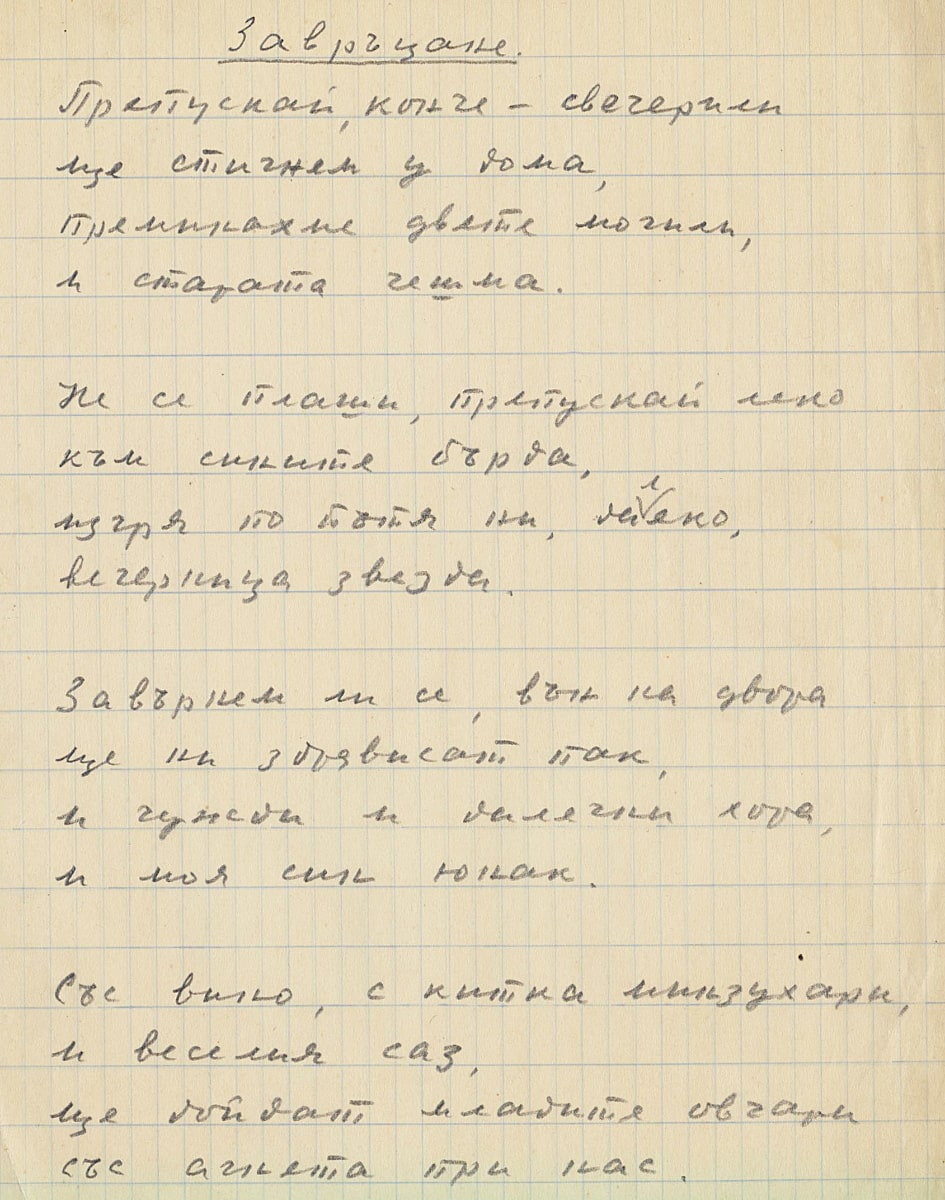 Завръщане.
Препускай, конче – свечерили
ще стигнем у дома,
преминахме двете могили,
и старата чешма.
Не се плаши, препускай леко
към сините бърда,
изгря по пътя ни, далеко,
вечерница звезда.
Завърнем ли се, вън на двора
ще ни здрависат пак,
и чужди и далечни хора,
и моя син юнак.
Със вино, с китка минзухари,
и веселия саз,
ще дойдат младите овчари
със агнета при нас.